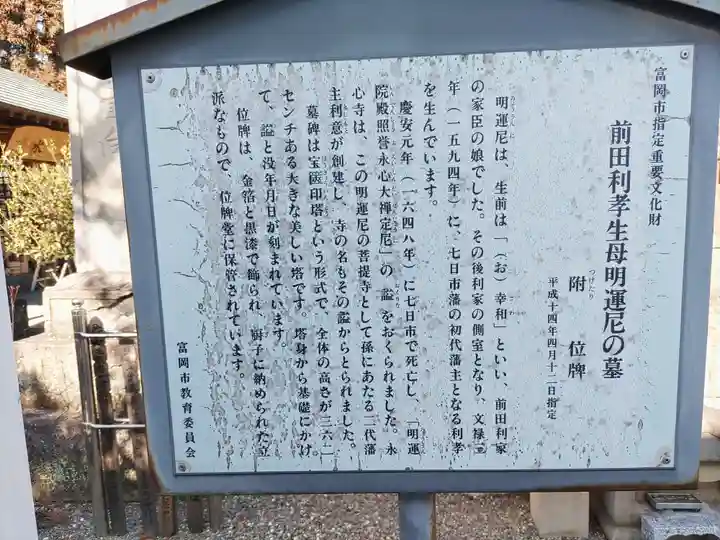 富岡市指定重要文化財
前田利孝生母明運尼の墓
附 位牌
つけたり
平成十四年四月十二日指定
明運尼は、生前は「(お)幸和」といい、前田利家
の家臣の娘でした。その後利家の側室となり、文禄三
年(一五九四年)に、七日市藩の初代藩主となる利孝
を生んでいます。
慶安元年(一六四八年)に七日市で死亡し、「明運
院殿照誉永心大禅定尼」の諡をおくられました。永
心寺は、この明運尼の菩提寺として孫にあたる二代藩
主利意が創建し、寺の名もその諡からとられました。
墓碑は宝篋印塔という形式で、全体の高さが三六一
センチある大きな美しい塔です。塔身から基礎にかけ
て、諡と没年月日が刻まれています。
位牌は、金箔と黒漆で飾られ、厨子に納められた立
派なもので、位牌堂に保管されています。
富岡市教育委員会